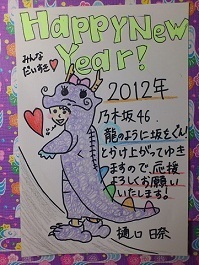 Happy New
Year!
みんな
だいすき♥
2012年
乃木坂46.
龍のように坂をぐん
とかけ上がってゆき
ますので、応援
よろしくお願い
いたします!
樋口 日奈